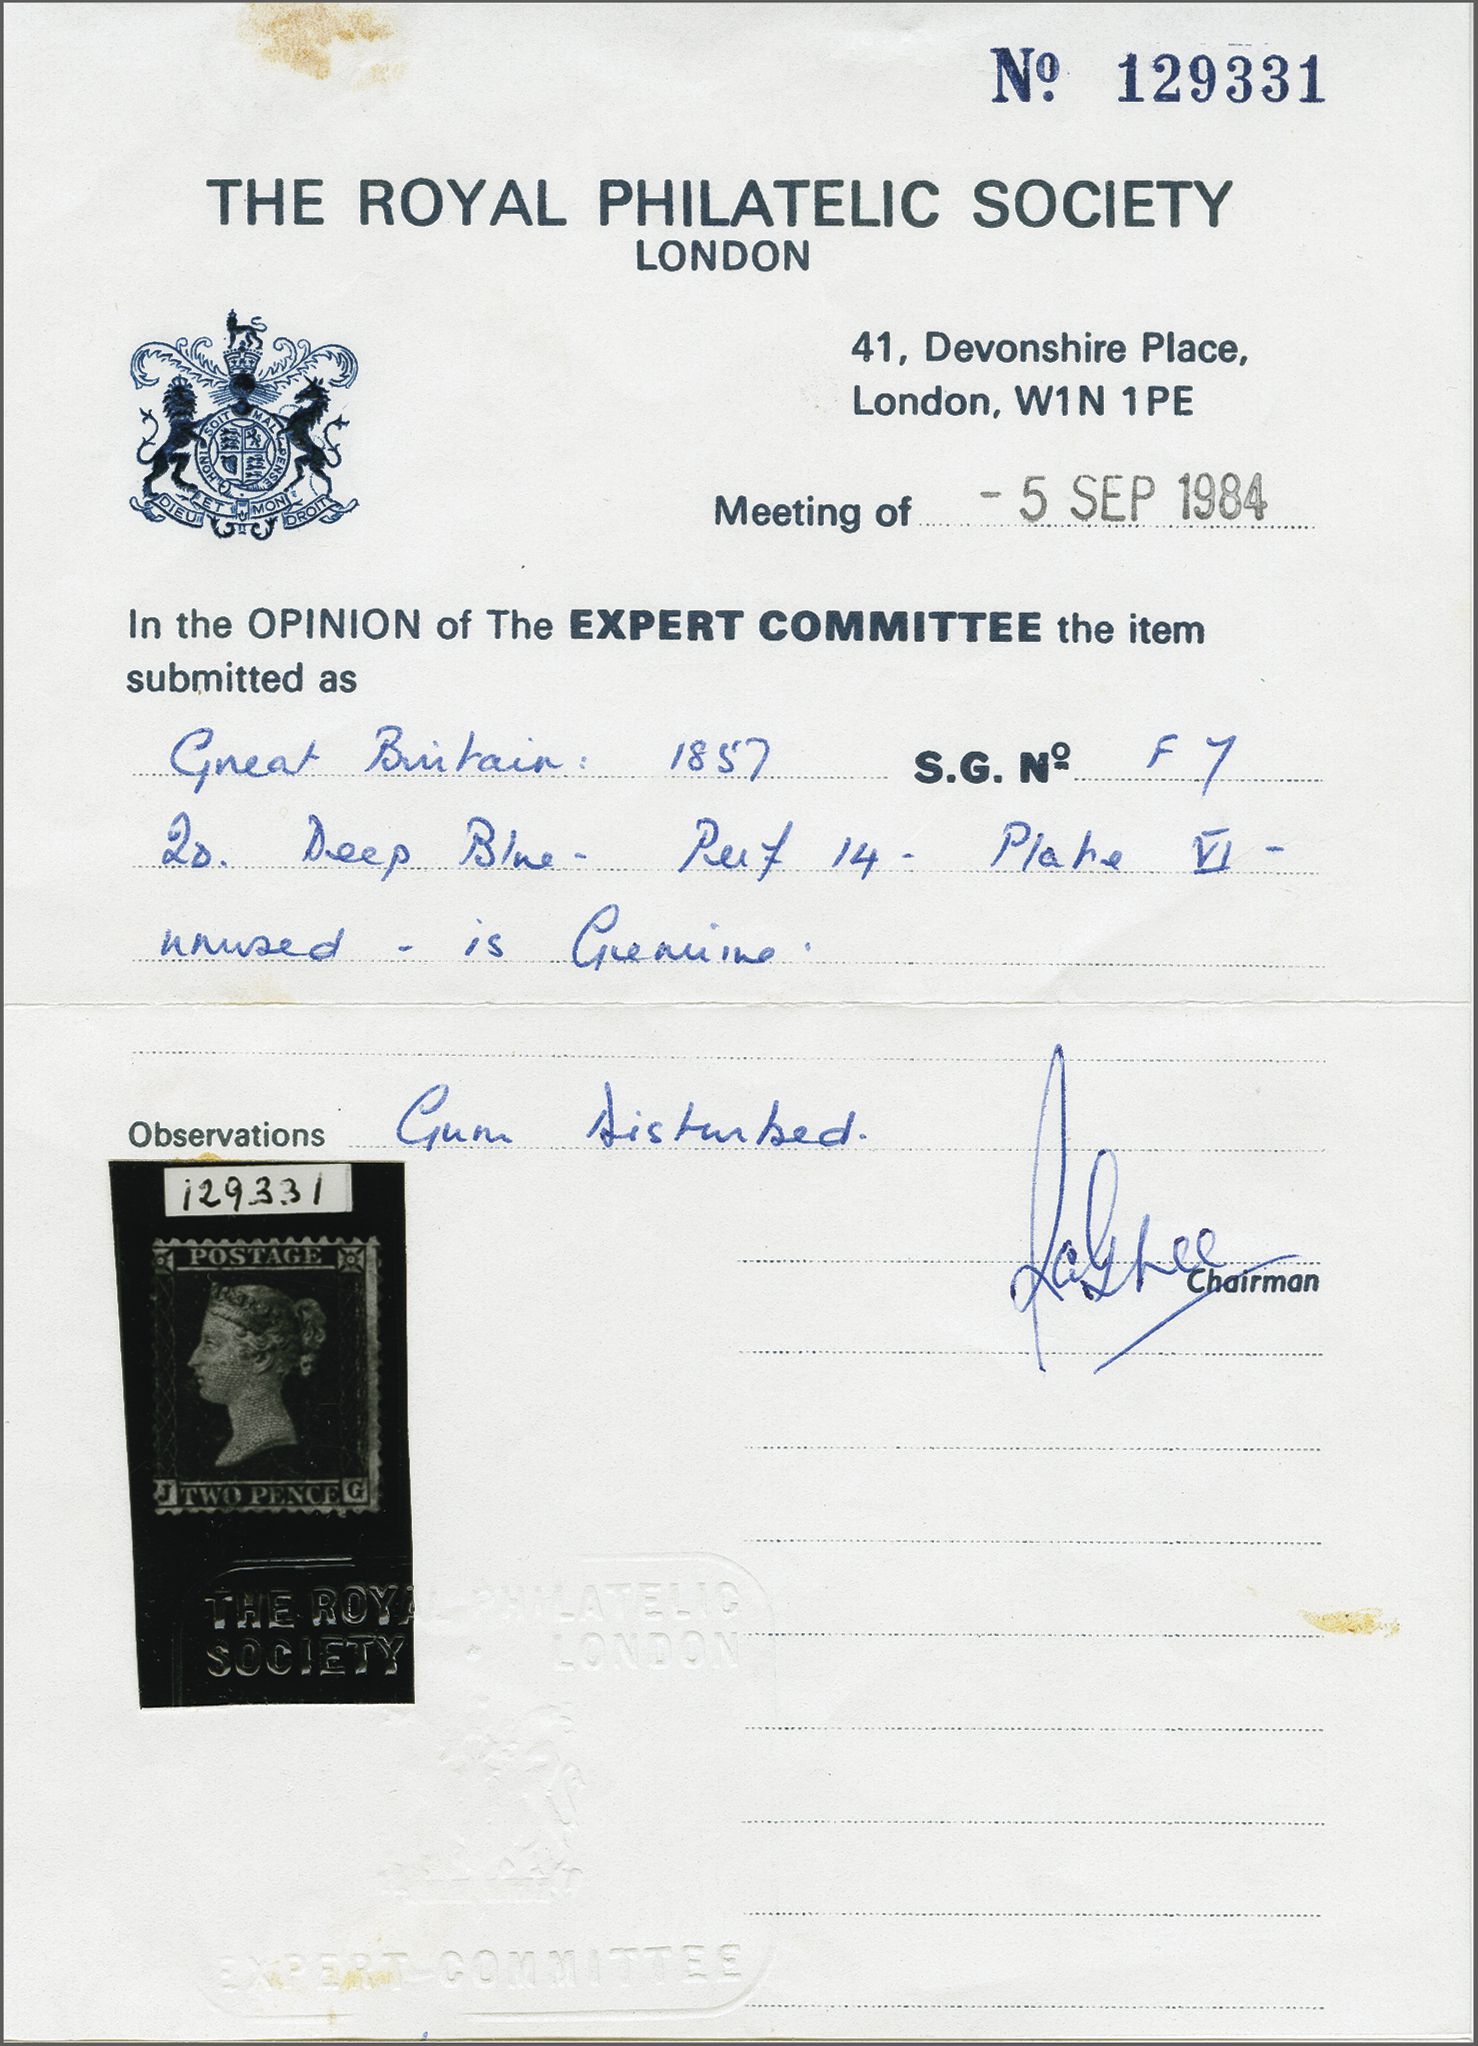 Nº 129331
THE ROYAL PHILATELIC SOCIETY
LONDON
41, Devonshire Place,
London, W1N 1PE
HONI SOIT MAL PENSE
DIEU ET MON DROIT
Meeting of - 5 SEP 1984
In the OPINION of The EXPERT COMMITTEE the item
submitted as
Great Britain: 1857 S.G. Nº F 7
2D. Deep Blue - Perf 14 - Plate VI -
unused - is Genuine.
Observations Gum Disturbed.
129331
POSTAGE
J TWO PENCE G
Chairman
THE ROYAL PHILATELIC
SOCIETY LONDON
EXPERT COMMITTEE